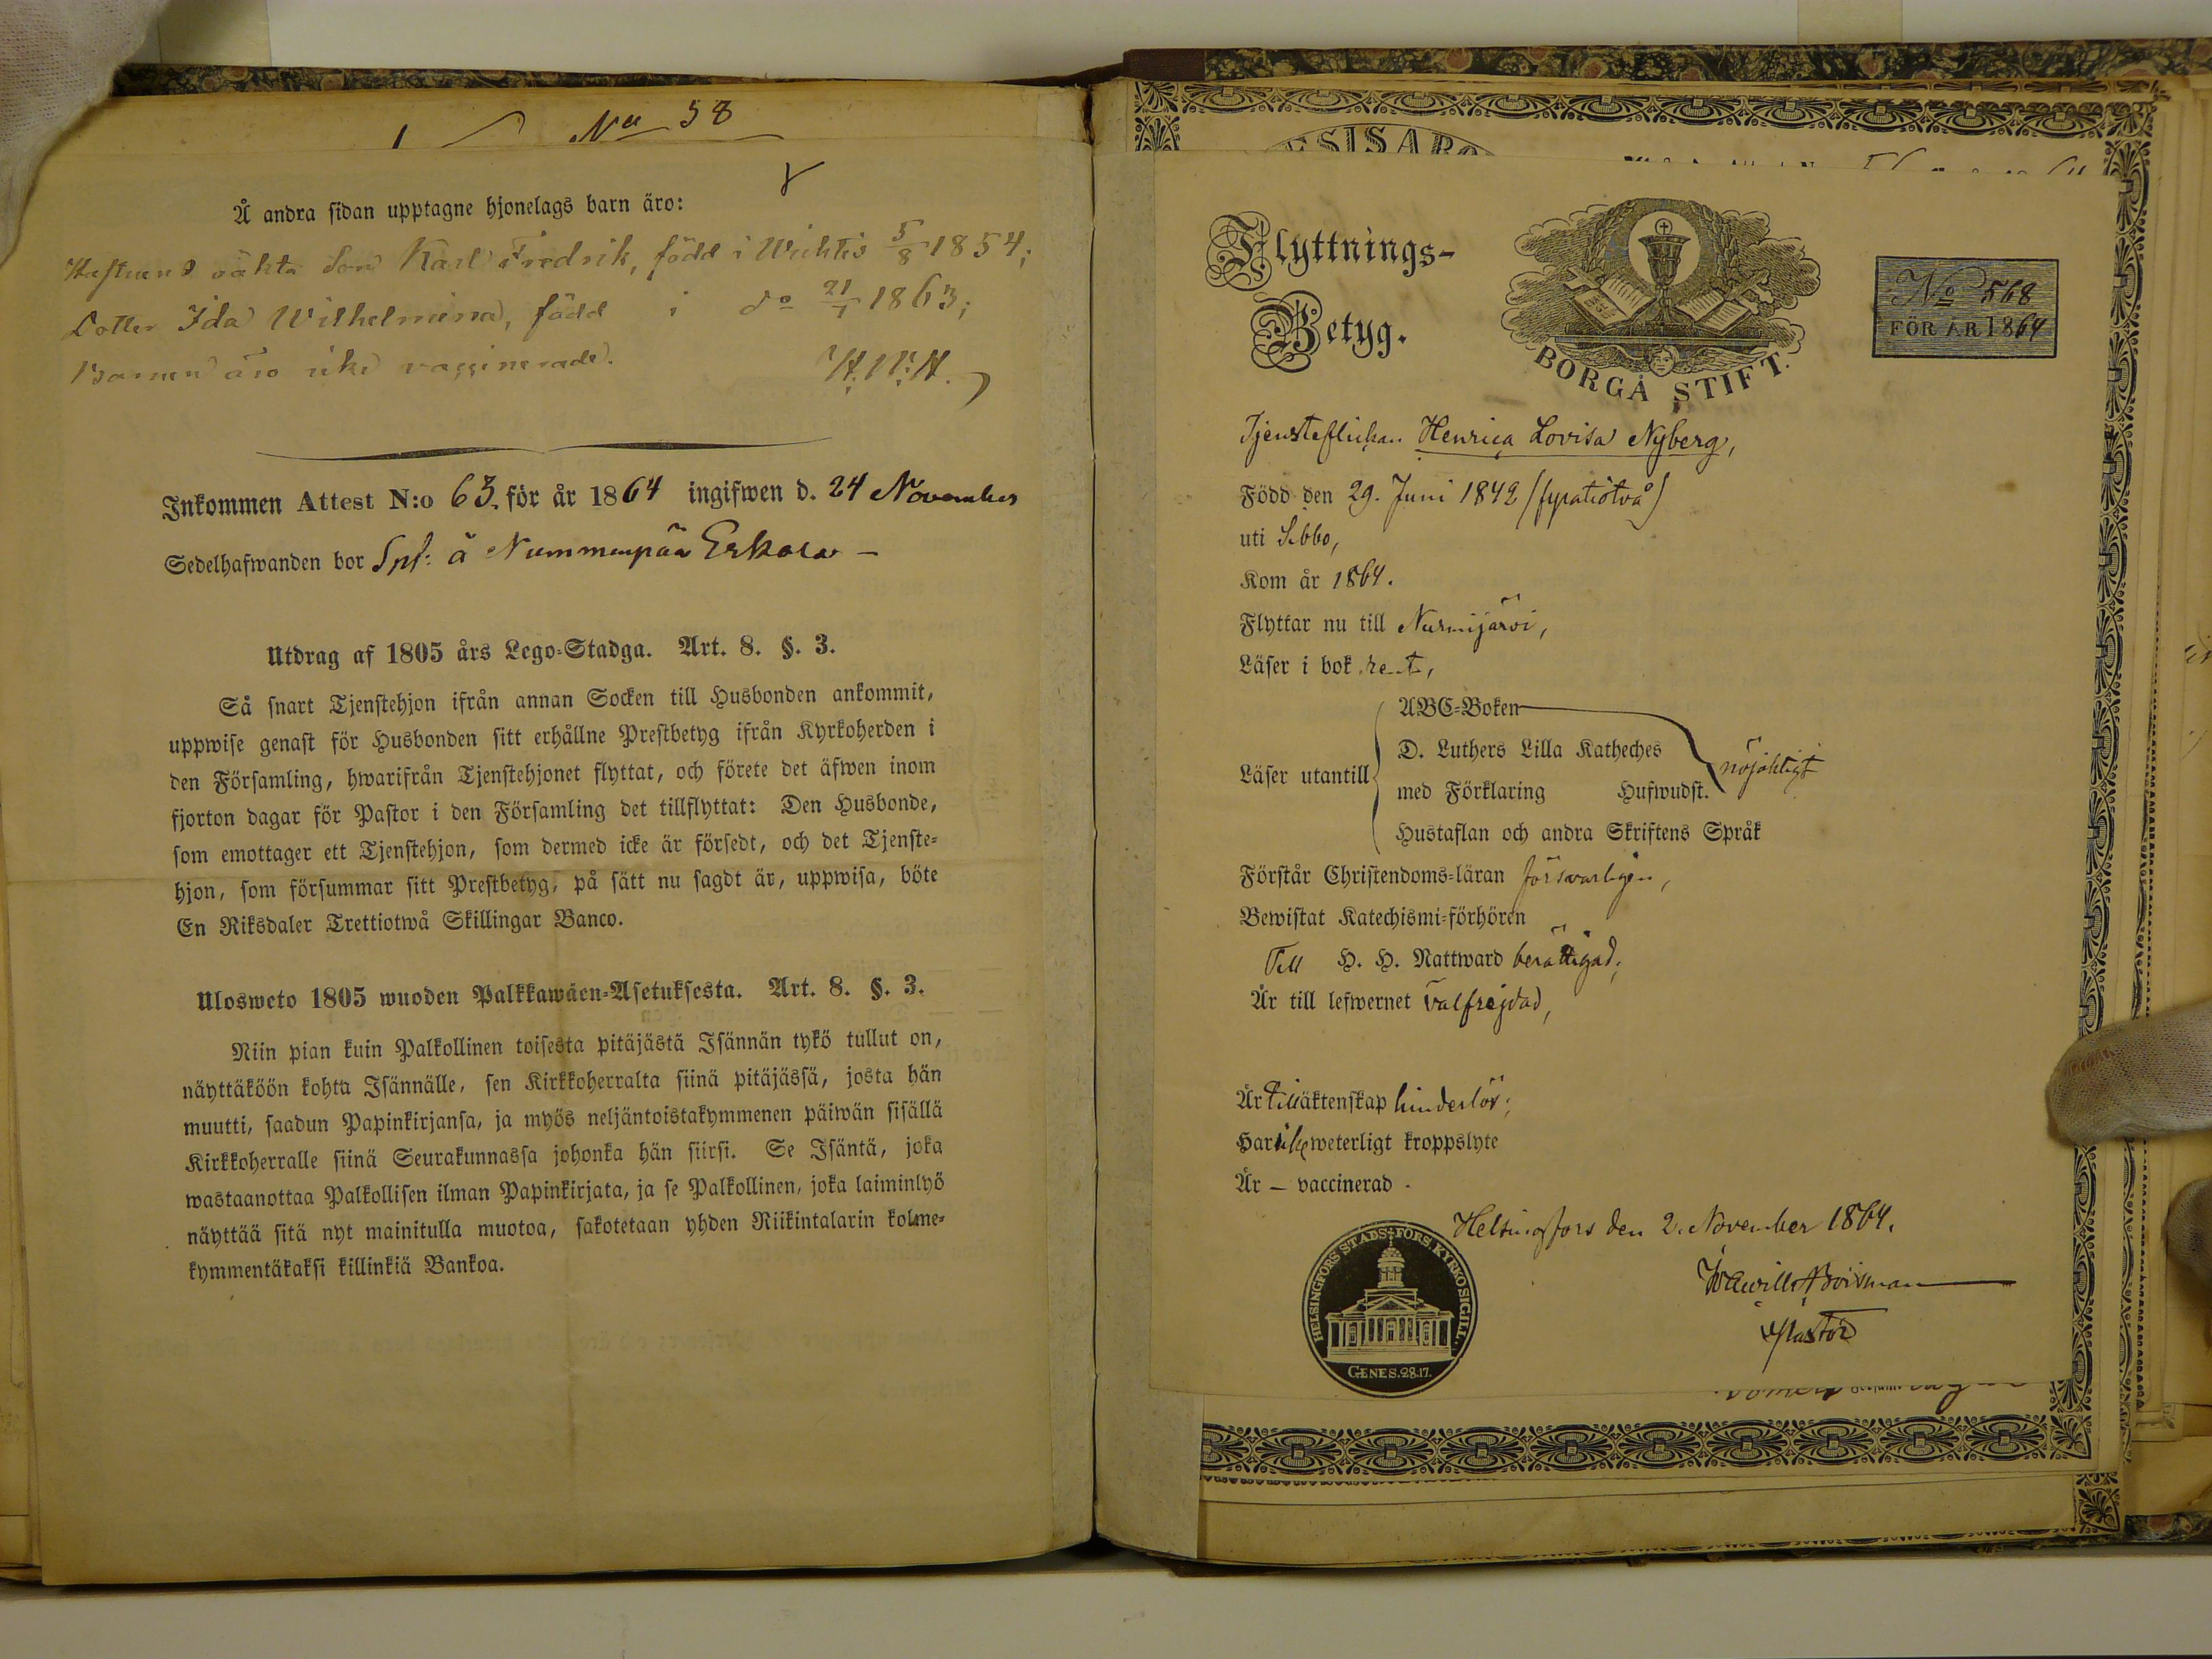 No 58
Å andra sidan upptagne hjonelags barn äro:
Hustruns oäkta son Karl Fredrik, född i Wichtis 5/8 1854;
Dotter Ida Wilhelmina, född i do 21/1 1863;
Barnen äro icke vaccinerade.
Inkommen Attest N:o 63. för år 1864 ingifwen d. 24 November
Sedelhafwanden bor Spf: å Nummenpää Erkola –
Utdrag af 1805 års Lego-Stadga. Art. 8. §. 3.
Så snart Tjenstehjon ifrån annan Socken till Husbonden ankommit,
uppwise genast för Husbonden sitt erhållne Prestbetyg ifrån Kyrkoherden i
den Församling, hwarifrån Tjenstehjonet flyttat, och förete det äfwen inom
fjorton dagar för Pastor i den Församling det tillflyttat: Den Husbonde,
som emottager ett Tjenstehjon, som dermed icke är försedt, och det Tjenste-
hjon, som försummar sitt Prestbetyg, på sätt nu sagdt är, uppwisa, böte
En Riksdaler Trettiotwå Skillingar Banco.
Ulosweto 1805 wuoden Palkkawäen-Asetuksesta. Art. 8. §. 3.
Niin pian kuin Palkollinen toisesta pitäjästä Isännän tykö tullut on,
näyttäköön kohta Isännälle, sen Kirkkoherralta siinä pitäjässä, josta hän
muutti, saadun Papinkirjansa, ja myös neljäntoistakymmenen päiwän sisällä
Kirkkoherralle siinä Seurakunnassa johonka hän siirsi. Se Isäntä, joka
wastaanottaa Palkollisen ilman Papinkirjata, ja se Palkollinen, joka laiminlyö
näyttää sitä nyt mainitulla muotoa, sakotetaan yhden Riikintalarin kolme-
kymmentäkaksi killinkiä Bankoa.
Flyttnings-
Betyg.
BORGÅ STIFT.
No 568
FÖR ÅR 1864
Tjensteflickan Henrica Lovisa Nyberg,
Född den 29. Juni 1842 (fyratiotvå)
uti Sibbo,
Kom år 1864.
Flyttar nu till Nurmijärvi,
Läser i bok rent,
ABC-Boken
D. Luthers Lilla Katheches
Läser utantill med Förklaring Hufwudst. nöjaktigt
Hustaflan och andra Skriftens Språk
Förstår Christendoms-läran försvarligen,
Bewistat Katechismi-förhören
Till H. H. Nattward berättigad;
Är till lefwernet välfrejdad,
Är till äktenskap hinderlös;
Har icke weterligt kroppslyte
Är – vaccinerad.
Helsingfors den 2. November 1864.
Pastor
HELSINGFORS STADS-FÖRS. KYRKOSIGILL.
GENES. 28.17.